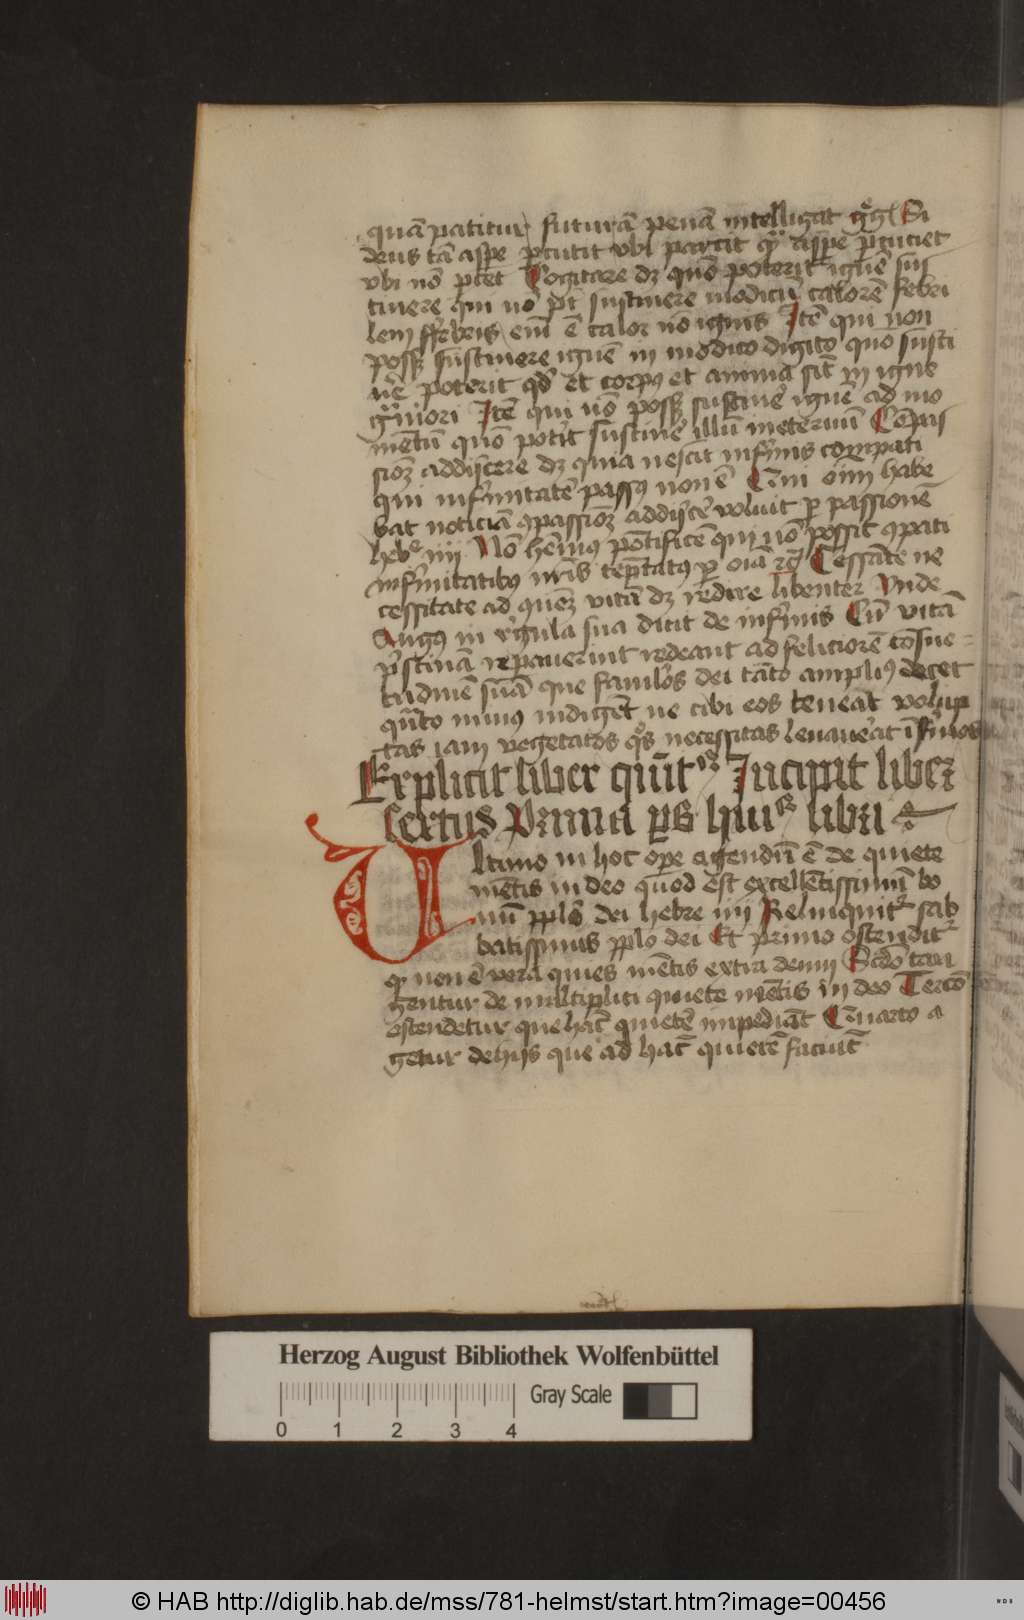 quā patitur futurā penā intelligat gͦgͥ Si
deus tā aspe ꝑcutit vbi parcit qͦ aspe ꝑcuciet
vbi nō ꝑcet Cogitare dꝫ quō poterit ignē sus
tinere qui nō pt sustinere modicū calorē febri
lem ffebris em̄ ē calor nō ignis Itē qui non
possꝫ sustinere ignē in modico digito quō susti
nē poterit qd et corpꝯ et anima sīt in igne
Itē qui nō possꝫ sustinē ignē ad mo
mētū quō potit sustinē illū in eternū Cōpas
sioꝫ addiscere dꝫ quia nescit infirmis compati
qui infirmitatē passꝯ non ē habe
bat noticiā ꝯpassioꝫ addiscē voluit ꝑ passionē
hebͤ iiii Nō hēmꝯ pōtificē qui nō possit ꝯpati
infirmitatibꝯ nr̄is tēptatꝯ ꝑ oīa rc̄ Cessāte ne
cessitate ad quēꝫ vitā dꝫ redire libenter Vnde
Augꝯ in rigula sua dicit de infirmis Cū vitā
pͥstinā repauerint redeant ad feliciorē cōsue=
tudinē suā que famlōs dei tāto ampliꝯ decet
qͣnto minꝯ indigēt ne cibi eos teneāt volup
tas iam vegetatos qͦs necessitas leuauāt īfirmos
Explicit liber quītꝯ Incipit liber
sextus Prima pars huiꝯ libri
Vltimo in hoc oꝑe agendū ē de quiete
mētis in deo quod est excellētissimū bo
nū pplō dei hebre iiii Relinquitꝛ sab
batissimus pplo dei Et primo ostenditꝛ
qꝫ non ē vera quies mētis extra deum Scdō tan
gentur de multiplici quiete mētis in deo Tercō
ostendetur que hāc quietē impediāt Quarto a
getur de hijs que ad hāc quietē faciūt
Herzog August Bibliothek Wolfenbüttel
Gray Scale
0 1 2 3 4
© HAB http://diglib.hab.de/mss/781-helmst/start.htm?image=00456